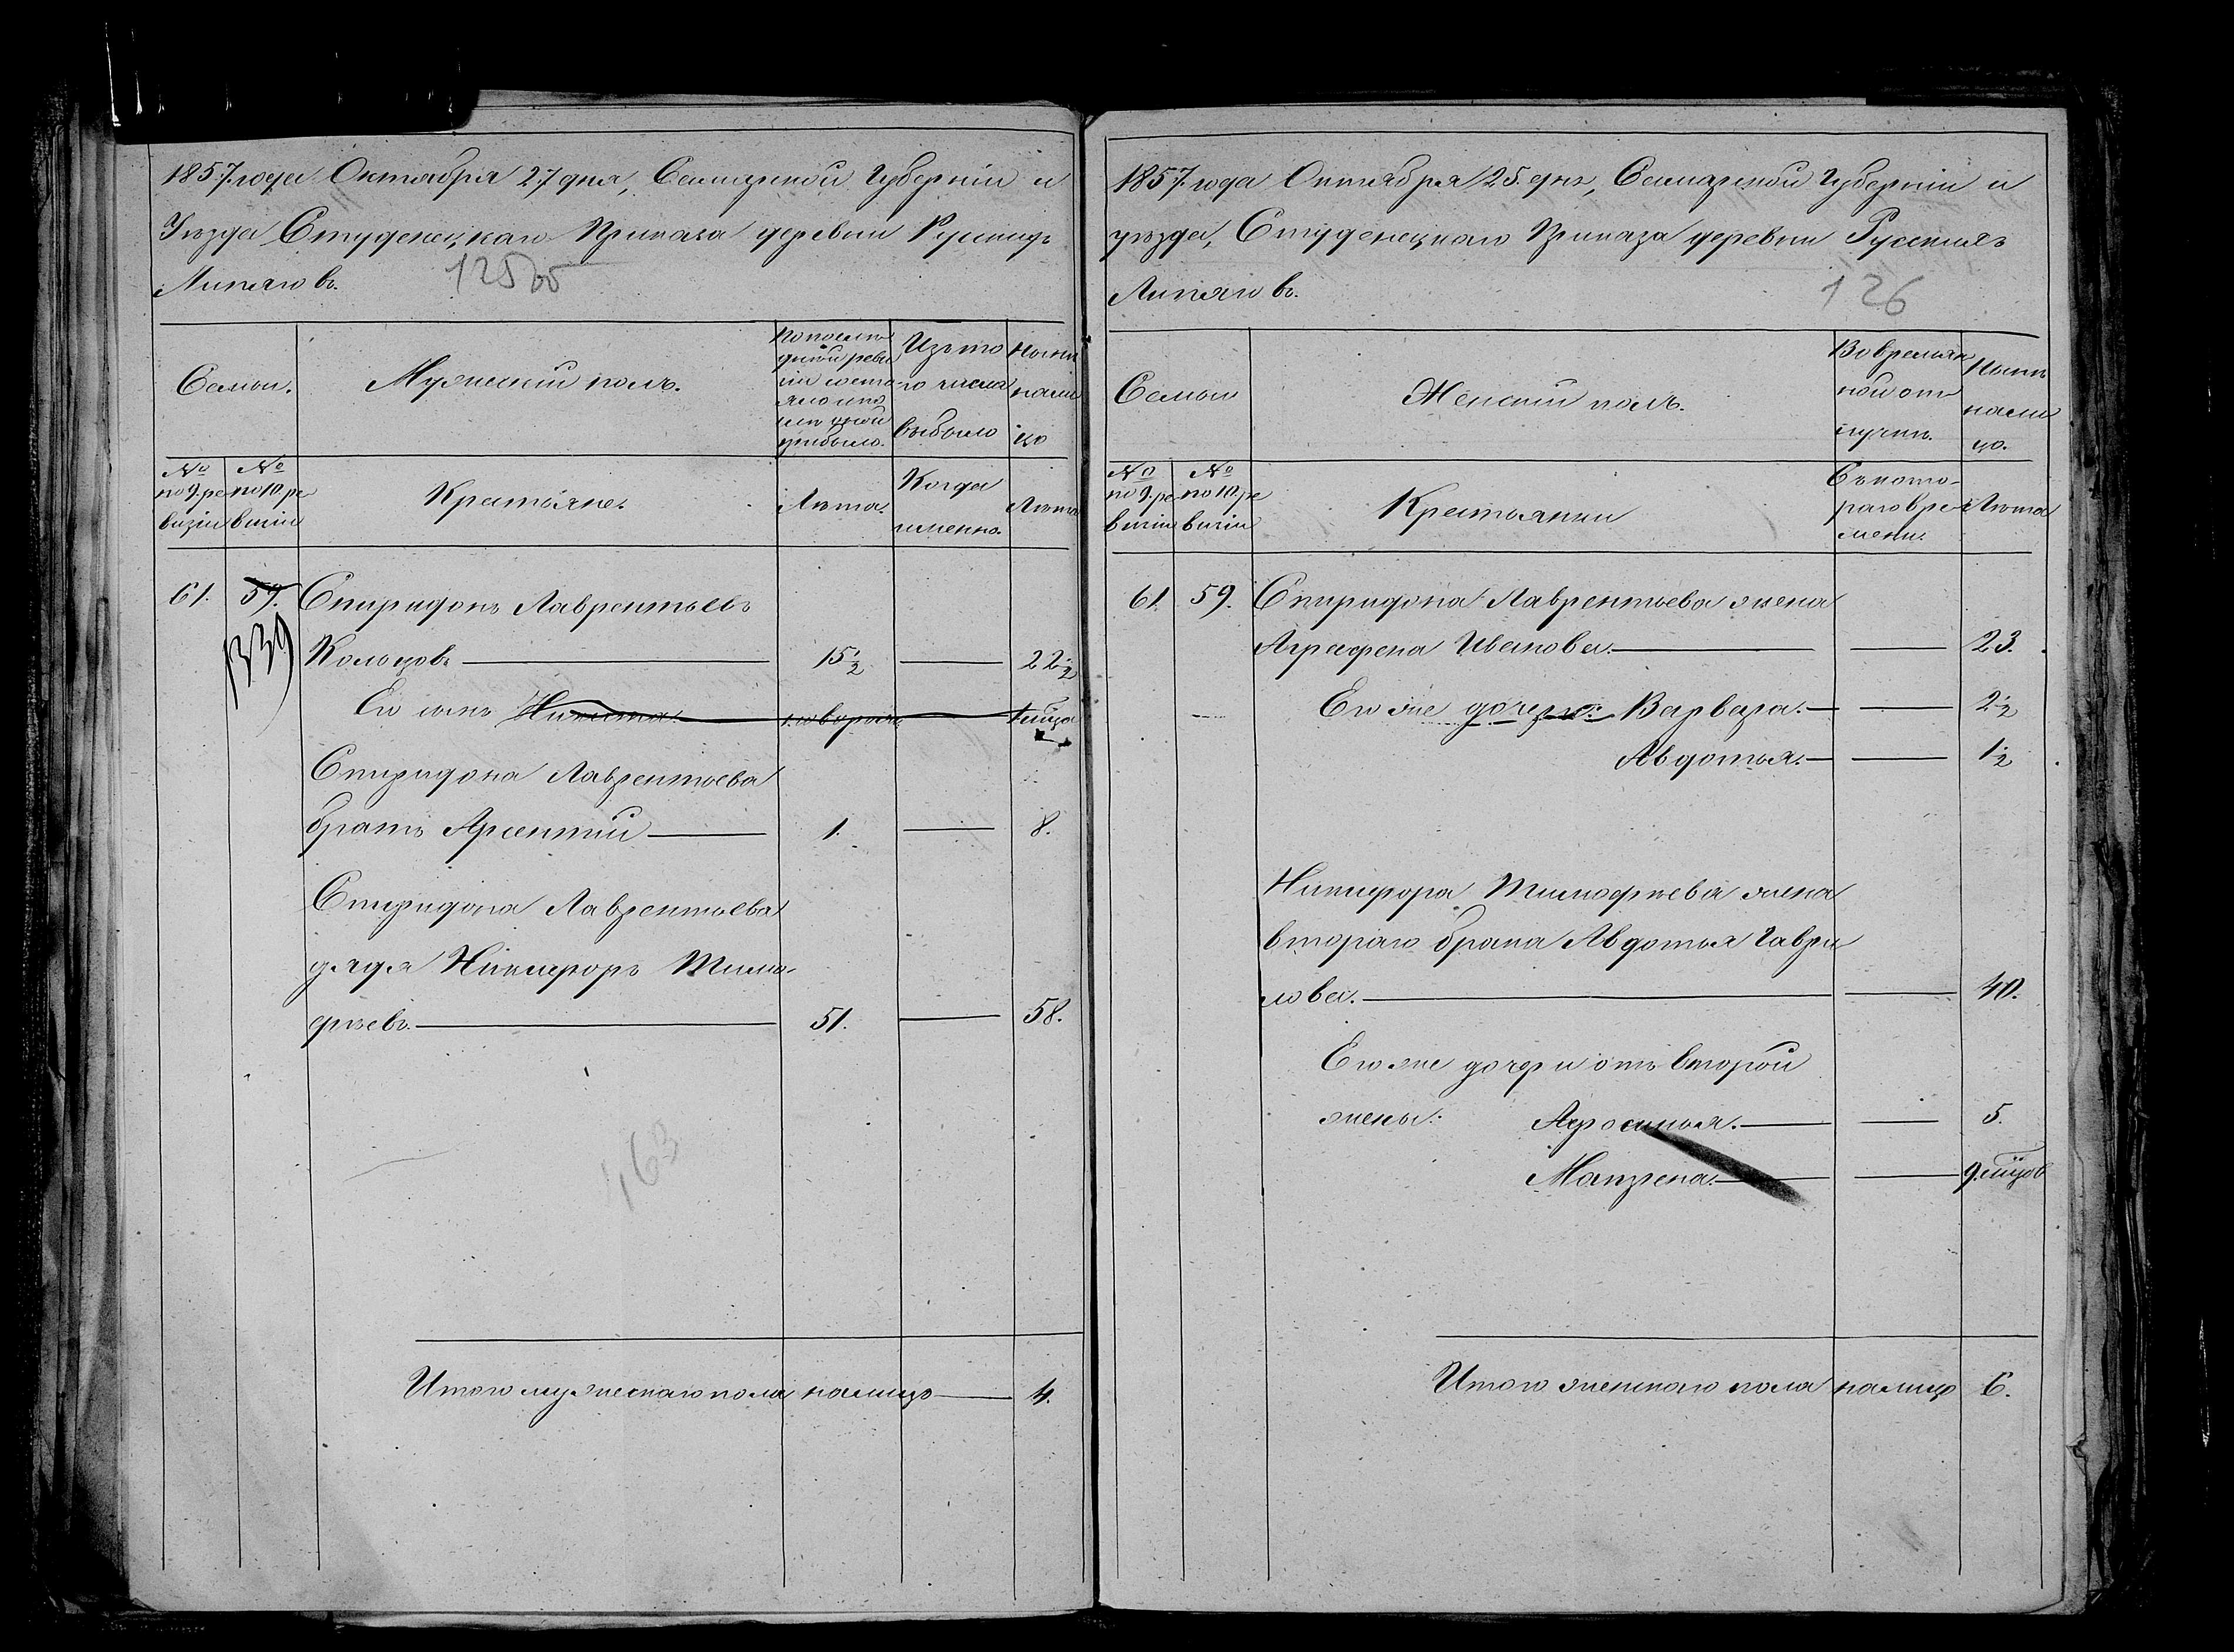 1857. года Октября 27 дня, Самарской Губерніи и
Уѣзда Студенецкаго Приказа деревни Русскихъ
Липяговъ.
125 об
Семьи.
Мужескій полъ.
По послѣ
дней реви
зіи состо
яло и по
слѣ оной
прибыло.
Изъ то
го числа
выбыло
Нынѣ
нали
цо
№
по 9. ре
визіи
№
по 10. ре
визіи
Крестьяне.
Лѣта.
Когда
именно.
Лѣта
61. 59. Спиридонъ Лаврентьевъ
1339
Кольцовъ 15½ 22½
Его сынъ Никита. новорож.
Спиридона Лаврентьева
братъ Арсентий 1. 8.
Спиридона Лаврентьева
дядя Никифоръ Тимо-
фѣевъ. 51. 58.
163
Итого мужескаго пола налицо 4.
1857. года Октября 25. дня, Самарской Губерніи и
уѣзда, Студенецкаго Приказа деревни Русскихъ
Липяговъ.
126
Семьи
Женскій полъ.
Во времян
ной от
лучкѣ.
Нынѣ
нали
цо.
№
по 9. ре
визіи
№
по 10. ре
визіи
Крестьянки
Съ кото-
раго вре
мени.
Лѣта
61. 59. Спиридона Лаврентьева жена
Аграфена Иванова. 23.
Его же дочери: Варвара. 2½
Авдотья. 1½
Никифора Тимофѣева жена
втораго брака Авдотья Гаври
лова. 40.
Его же дочери отъ второй
жены: Афросинья. 5.
Матрена. 9. мцов
Итого женскаго пола налицо 6.